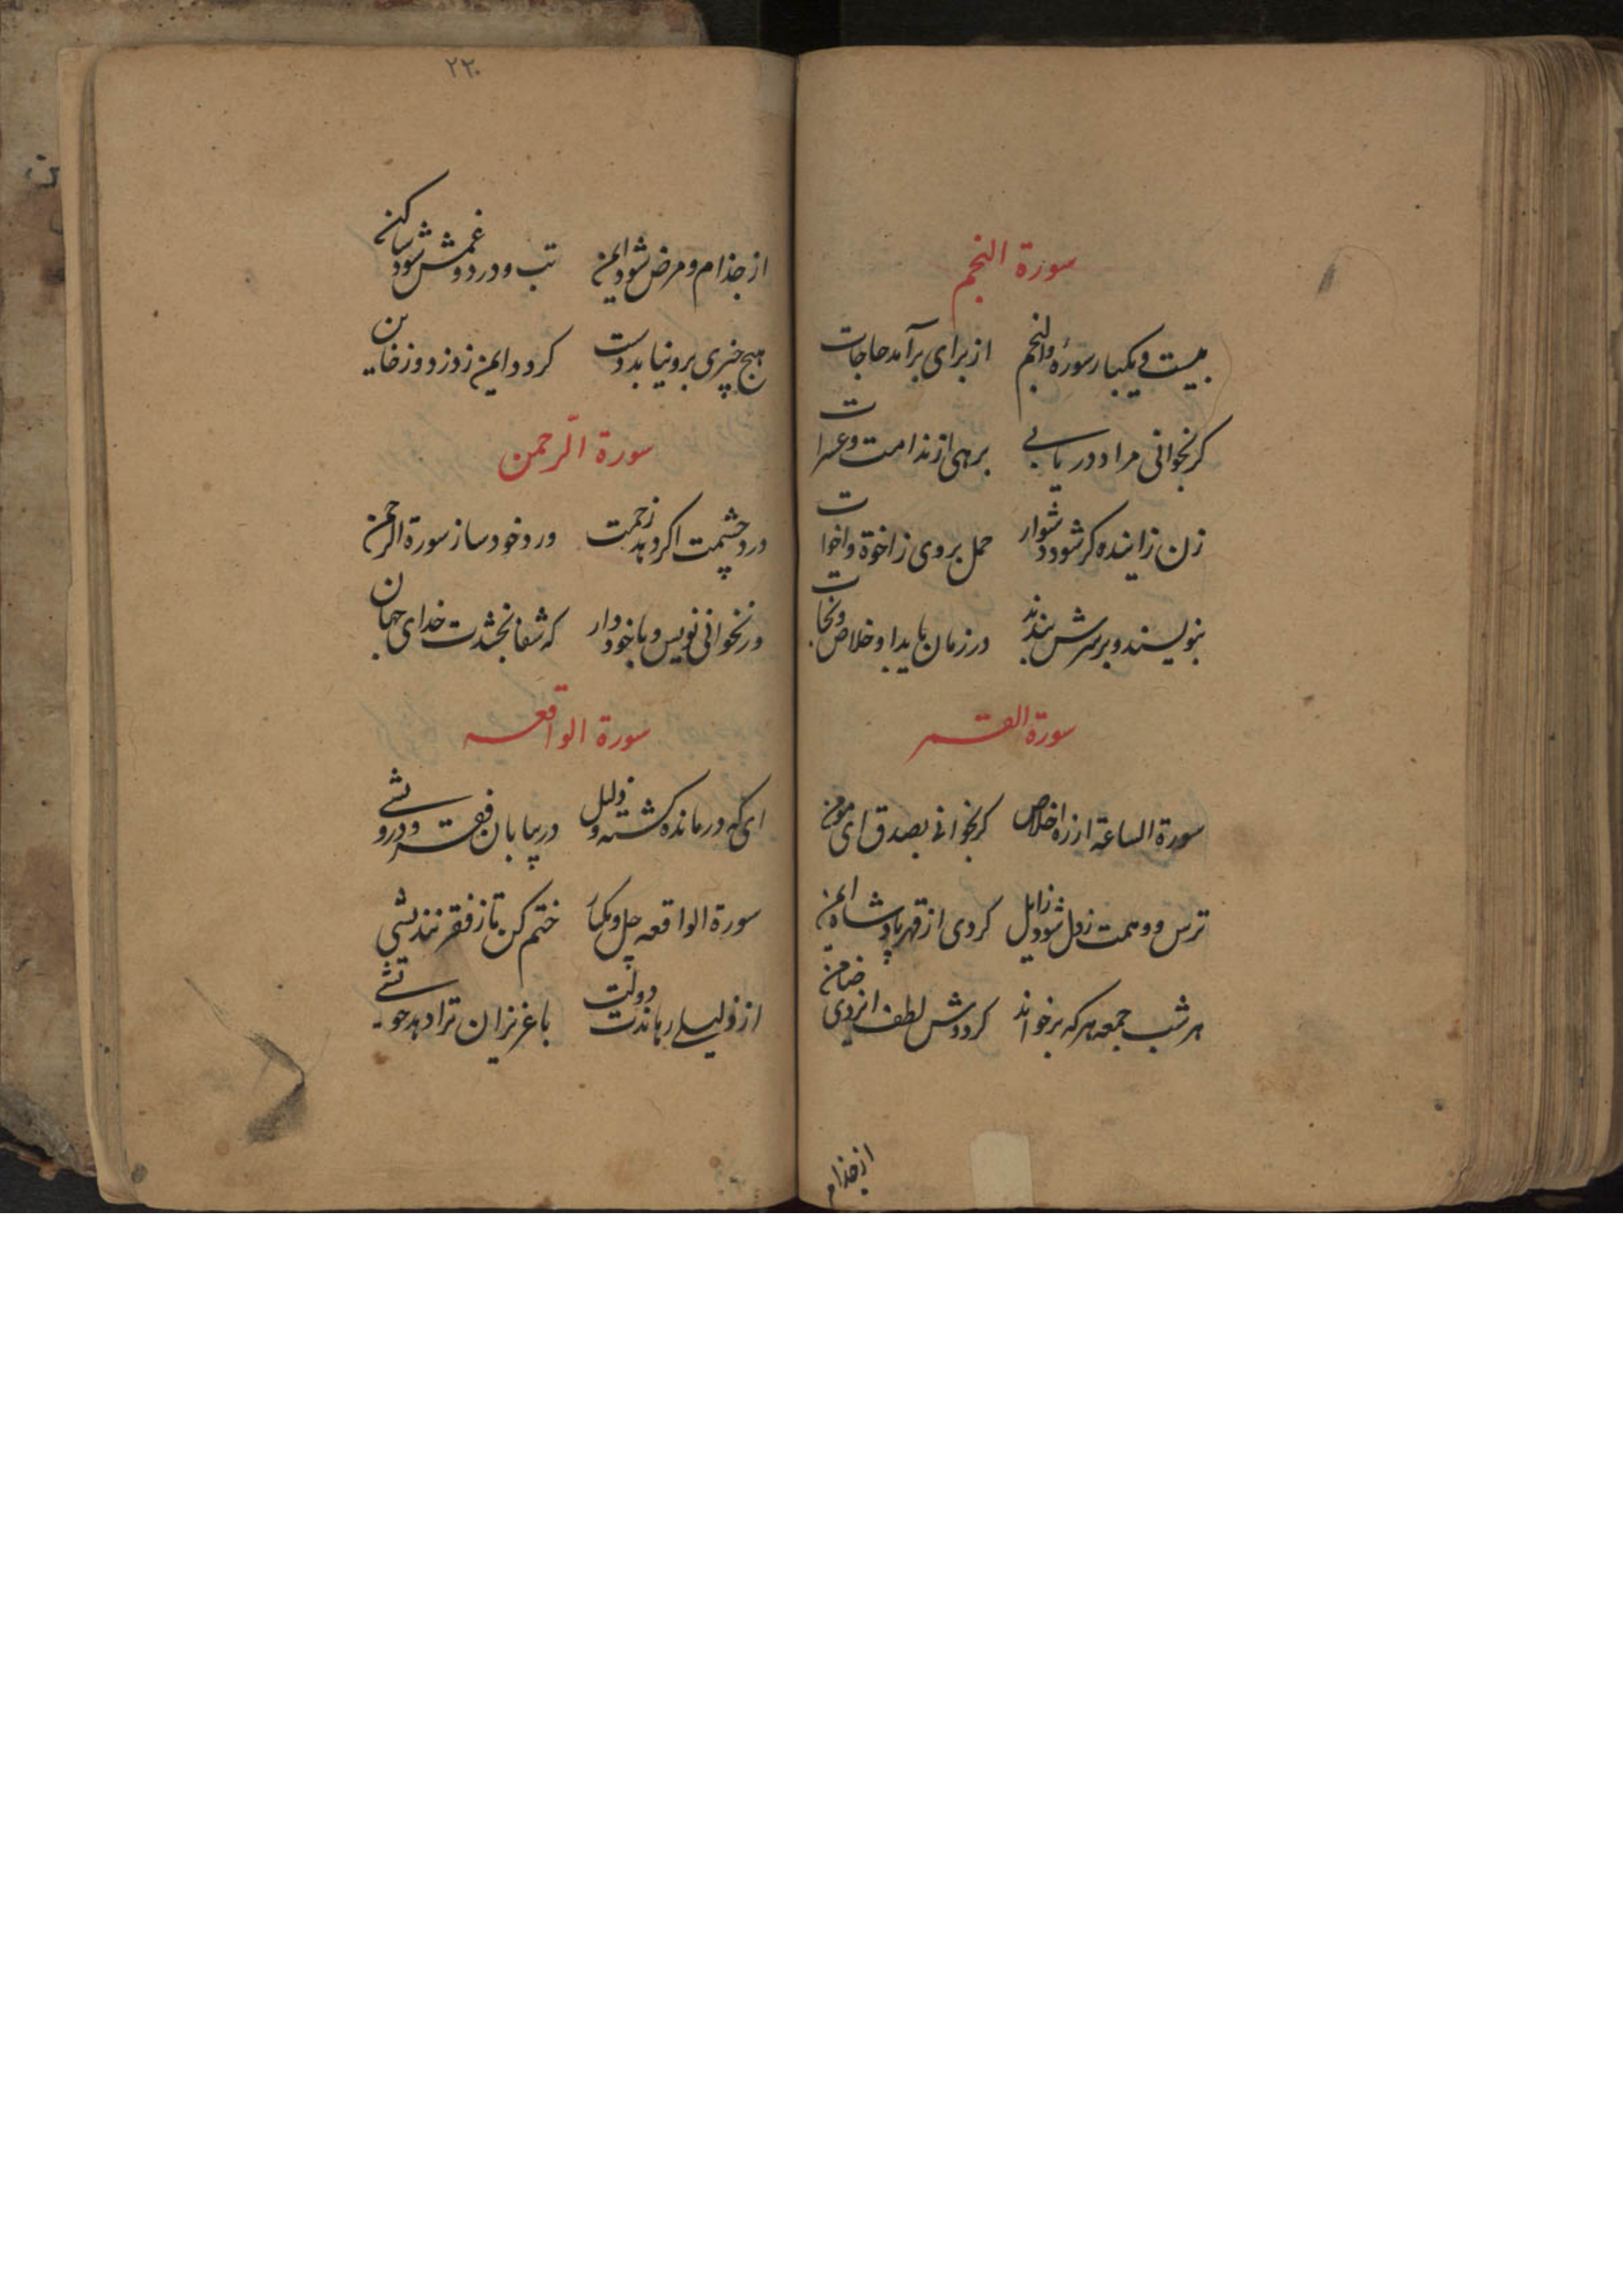 سورة النجم
بیست و یکبار سورهٔ والنجم از برای برآمد حاجات
کر بخوانی مراد دریابی برهی از ندامت و عسرات
زن زاینده کر شود دشوار حمل بروی ز اخوة و اخوات
بنویسند و برسرش بندند در زمان یابد او خلاص و نجات
سورة القمر
سورة الساعة از ره اخلاص کر بخوانی بصدق ای مومن
ترس و وهمت ز دل شود زایل کردی از قهر پادشاه ایمن
هر شب جمعه هر که برخواند کرددش لطف ایزدی ضامن
از جذام
۲۲۰
از جذام و مرض شود ایمن تب و درد و غمش شود ساکن
هیچ چیزی برو نیابد دست کردد ایمن ز دزد و ز خاین
سورة الرحمن
درد چشمت اکر دهد زحمت ورد خود ساز سورة الرحمن
ور نخوانی نویس و با خود دار که شفا بخشدت خدای جهان
سورة الواقعه
ای که درمانده کشته و ذلیل در بیابان فقر و درویشی
سورة الواقعه چل و یکبار ختم کن تا ز فقر نندیشی
از ذلیلی رهاندت دولت با عزیزان ترا دهد خویشی